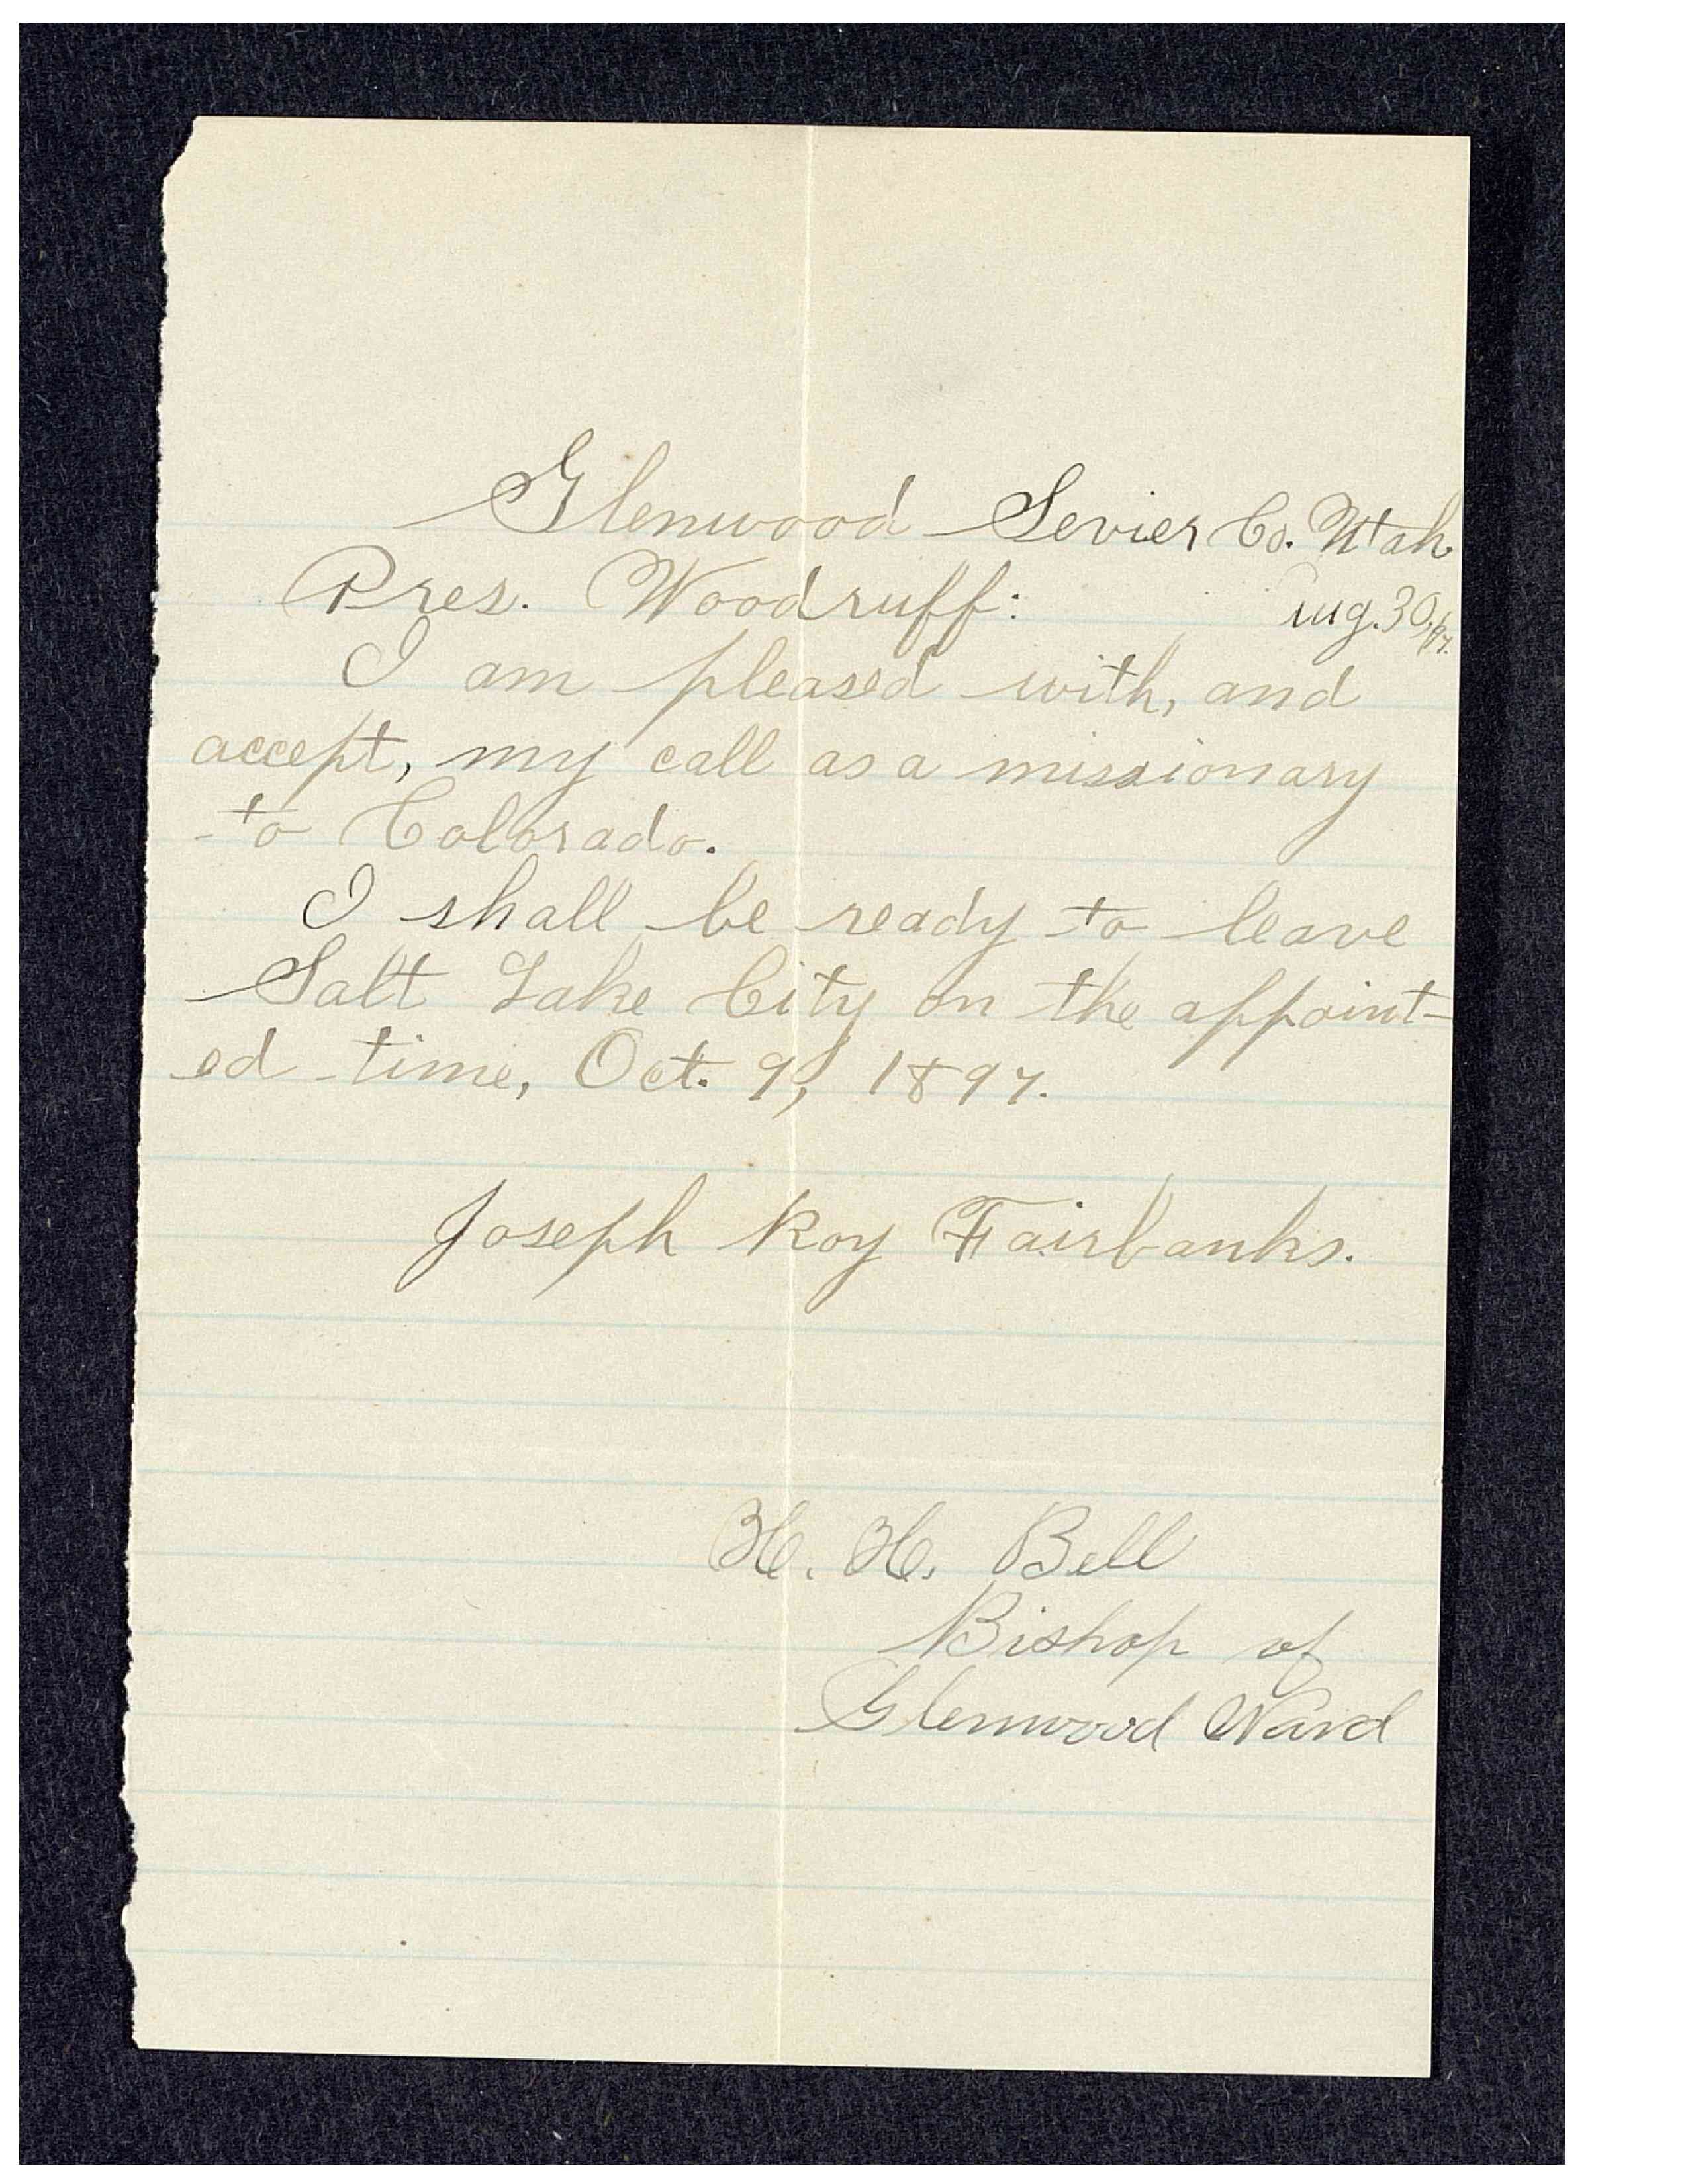 Glenwood Sevier Co. Utah
Pres. Woodruff: Aug. 30, /97.
I am pleased with, and
accept, my call as a missionary
to Colorado.
I shall be ready to leave
Salt Lake City on the appoint-
ed time, Oct. 9, 1897.
Joseph Roy Fairbanks.
H. H. Bell
Bishop of
Glenwood Ward